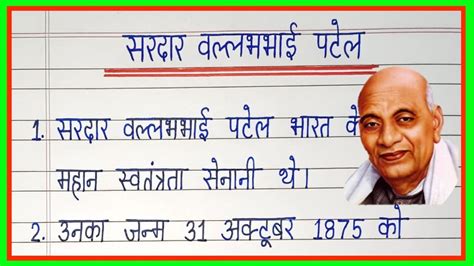 सरदार वल्लभभाई पटेल
1. सरदार वल्लभभाई पटेल भारत के
महान स्वतंत्रता सेनानी थे।
2. उनका जन्म 31 अक्टूबर 1875 को